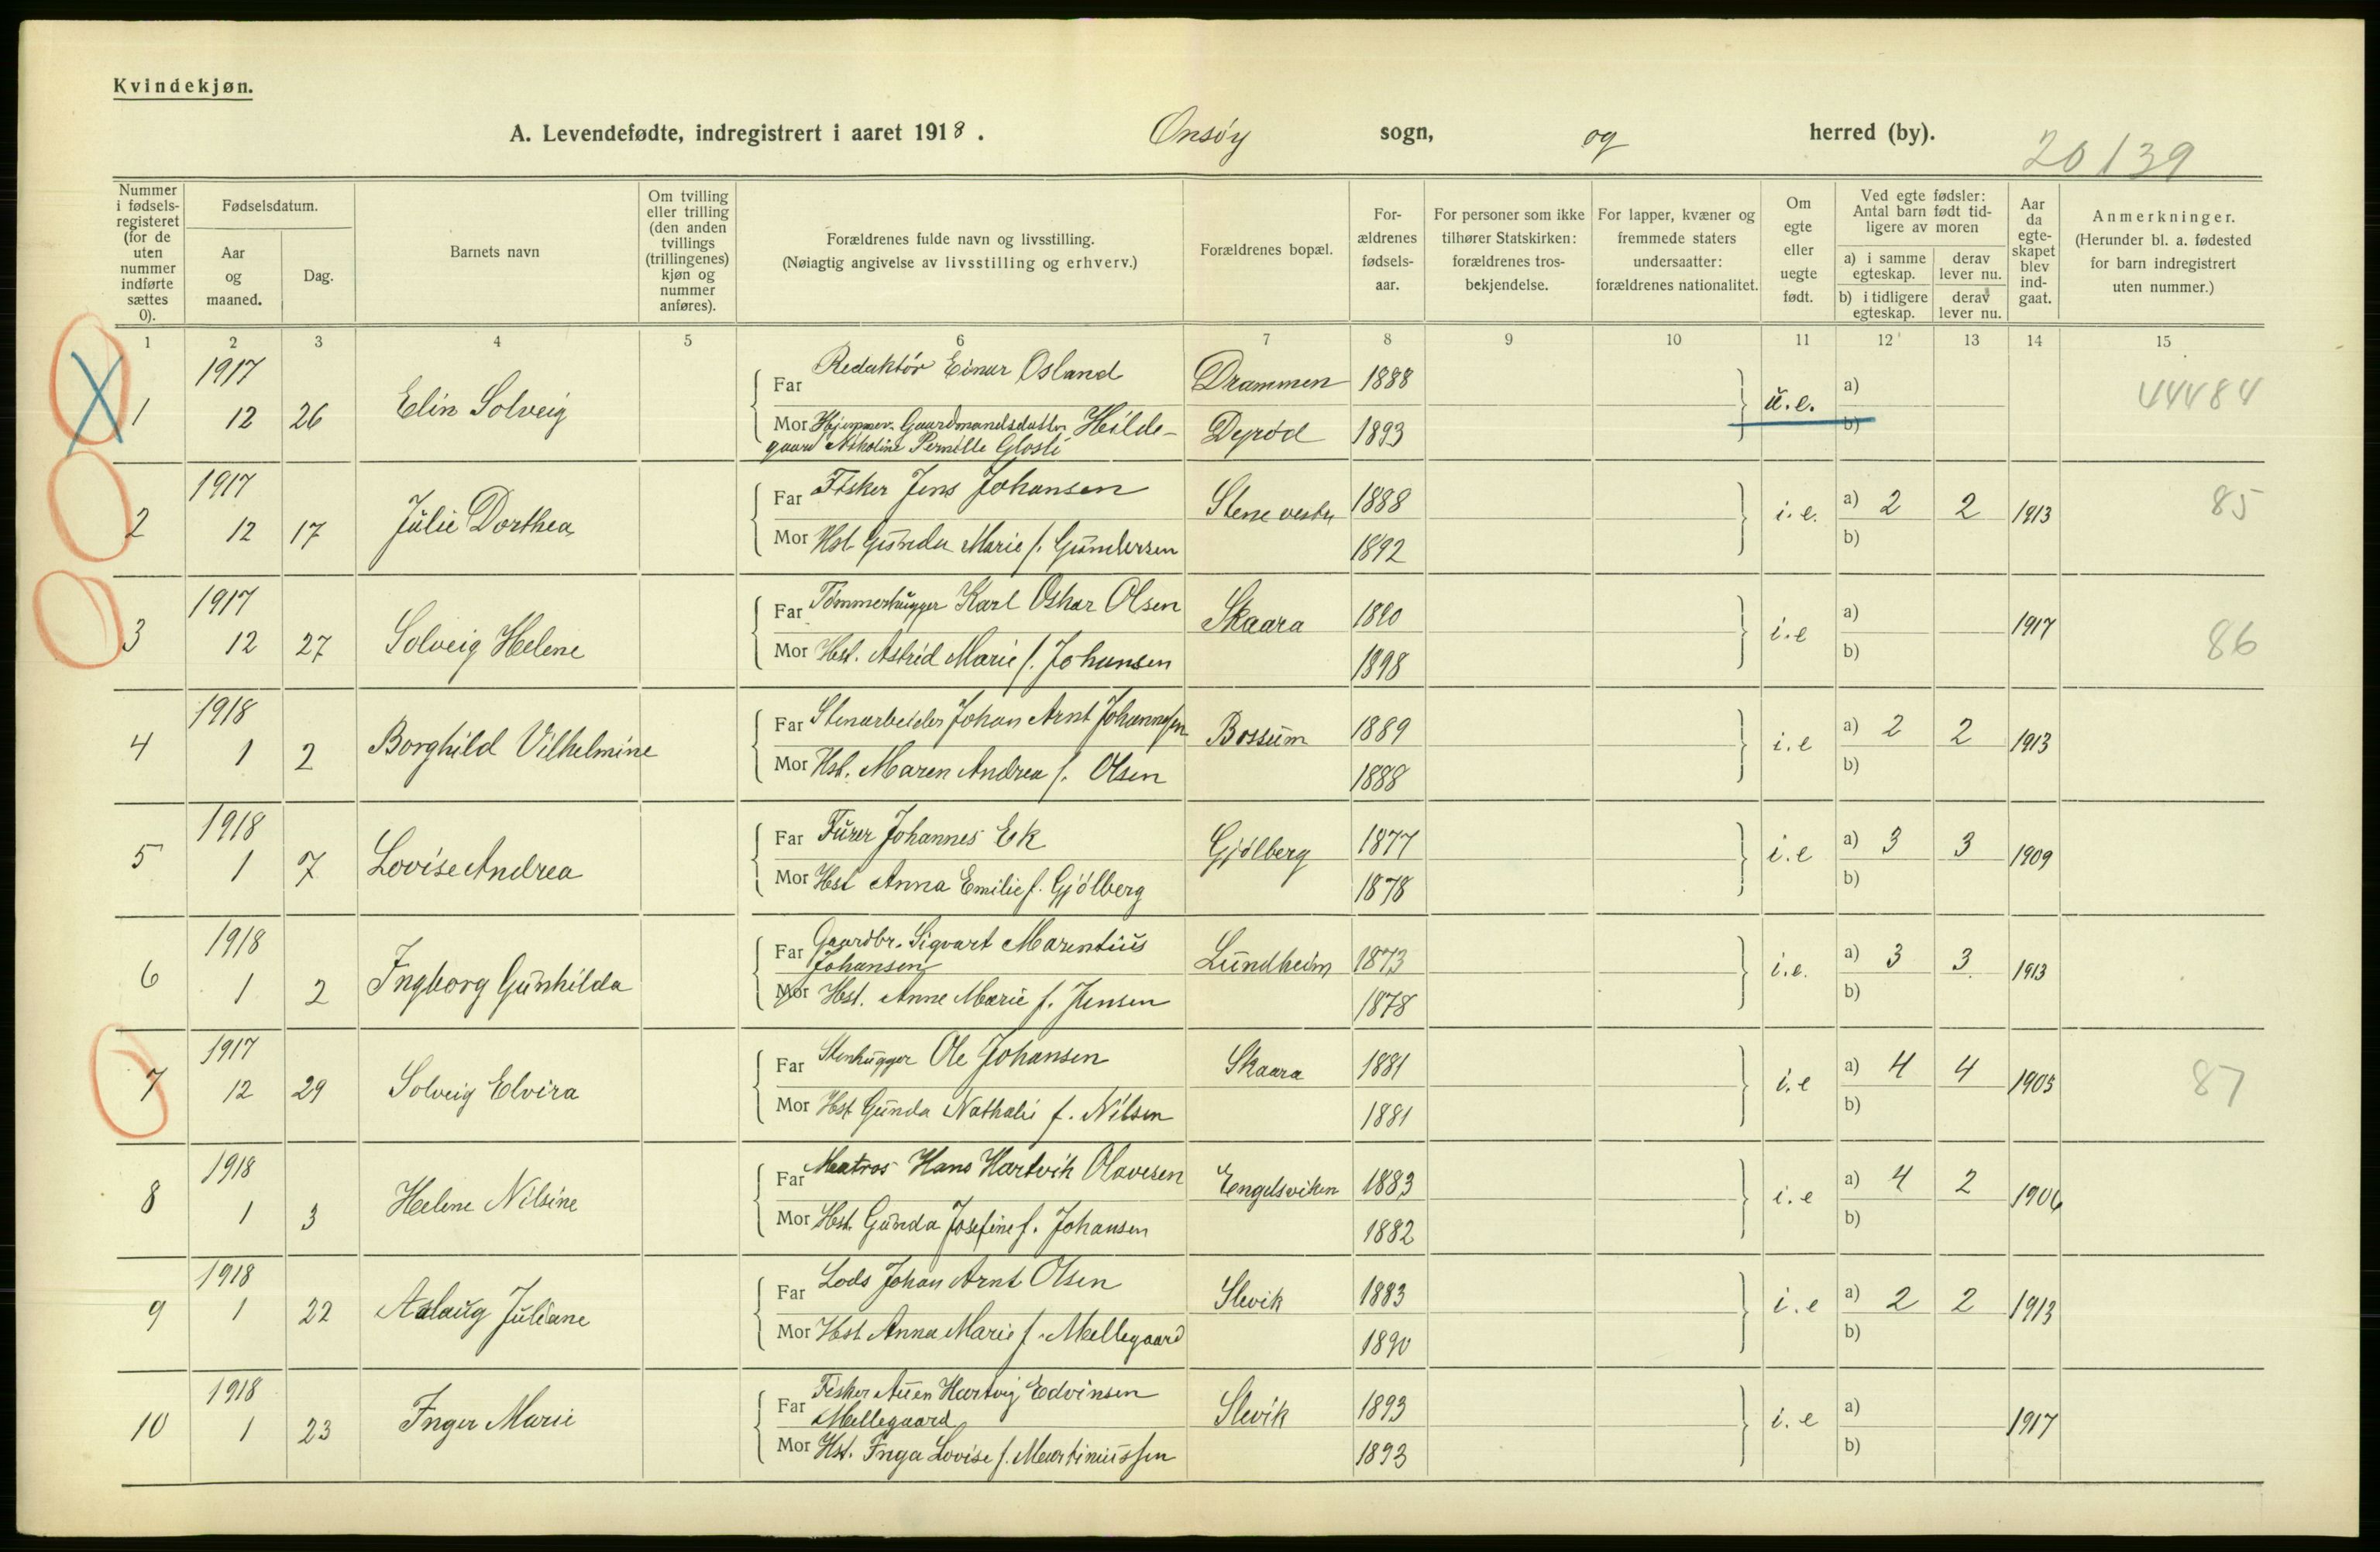 Kvindekjøn.
A. Levendefødte, indregistrert i aaret 1918. Onsøy sogn, og herred (by).
20139
Nummer i fødsels-registeret (for de uten nummer indførte sættes 0).
Fødselsdatum.
Aar og maaned.
Dag.
Barnets navn
Om tvilling eller trilling (den anden tvillings (trillingenes) kjøn og nummer anføres).
Forældrenes fulde navn og livsstilling.
(Nøiagtig angivelse av livsstilling og erhverv.)
Forældrenes bopæl.
For-ældrenes fødsels-aar.
For personer som ikke tilhører Statskirken: forældrenes tros-bekjendelse.
For lapper, kvæner og fremmede staters undersaatter: forældrenes nationalitet.
Om egte eller uegte født.
Ved egte fødsler: Antal barn født tid-ligere av moren
a) i samme egteskap.
derav lever nu.
b) i tidligere egteskap.
derav lever nu.
Aar da egte-skapet blev ind-gaat.
Anmerkninger.
(Herunder bl. a. fødested for barn indregistrert uten nummer.)
1 2 3 4 5 6 7 8 9 10 11 12 13 14 15
1917
1 12 26 Elin Solveig
Far Redaktør Einar Osland Drammen 1888
u.e. a) 44484
Mor Hjemmev. Gaardmandsdatter Hilde- Dyrød 1893
b)
gaard Pernille Glosli
1917
2 12 17 Julie Dorthea
Far Fisker Jens Johansen Slene vestre 1888
i.e. a) 2 2 1913 85
Mor Hst Gunda Marie f. Gundersen 1892
b)
1917
3 12 27 Solveig Helene
Far Tømmerhugger Karl Oskar Olsen Skaara 1890
i.e a) 1917 86
Mor Hst. Astrid Marie f. Johansen 1898
b)
1918
4 1 2 Borghild Vilhelmine
Far Stenarbeider Johan Arnt Johannesen Bossum 1889
i.e a) 2 2 1913
Mor Hst. Maren Andrea f. Olsen 1888
b)
1918
5 1 7 Lovise Andrea
Far Furer Johannes Ek Gjølberg 1877
i.e a) 3 3 1909
Mor Hst Anna Emilie f. Gjølberg 1878
b)
1918
6 1 2 Ingborg Gunhilda
Far Gaardbr. Sigvart Marentius
Johansen Lundheim 1873
i.e. a) 3 3 1913
Mor Hst. Anne Marie f. Jensen 1878
b)
1917
7 12 29 Solveig Elvira
Far Stenhugger Ole Johansen Skaara 1881
i.e a) 4 4 1905 87
Mor Hst Gunda Nathali f. Nilsen 1881
b)
1918
8 1 3 Helene Nilsine
Far Matros Hans Hartvik Olavesen Engelsviken 1883
i.e a) 4 2 1906
Mor Hst. Gunda Josefine f. Johansen 1882
b)
1918
9 1 22 Aslaug Juliane
Far Lods Johan Arnt Olsen Slevik 1883
i.e a) 2 2 1913
Mor Hst Anna Marie f. Mellegaard 1890
b)
1918
10 1 23 Inger Marie
Far Fisker Hartvig Edvinsen
Mellegaard Slevik 1893
i.e a) 1917
Mor Hst. Inga Lovise f. Martiniussen 1893
b)